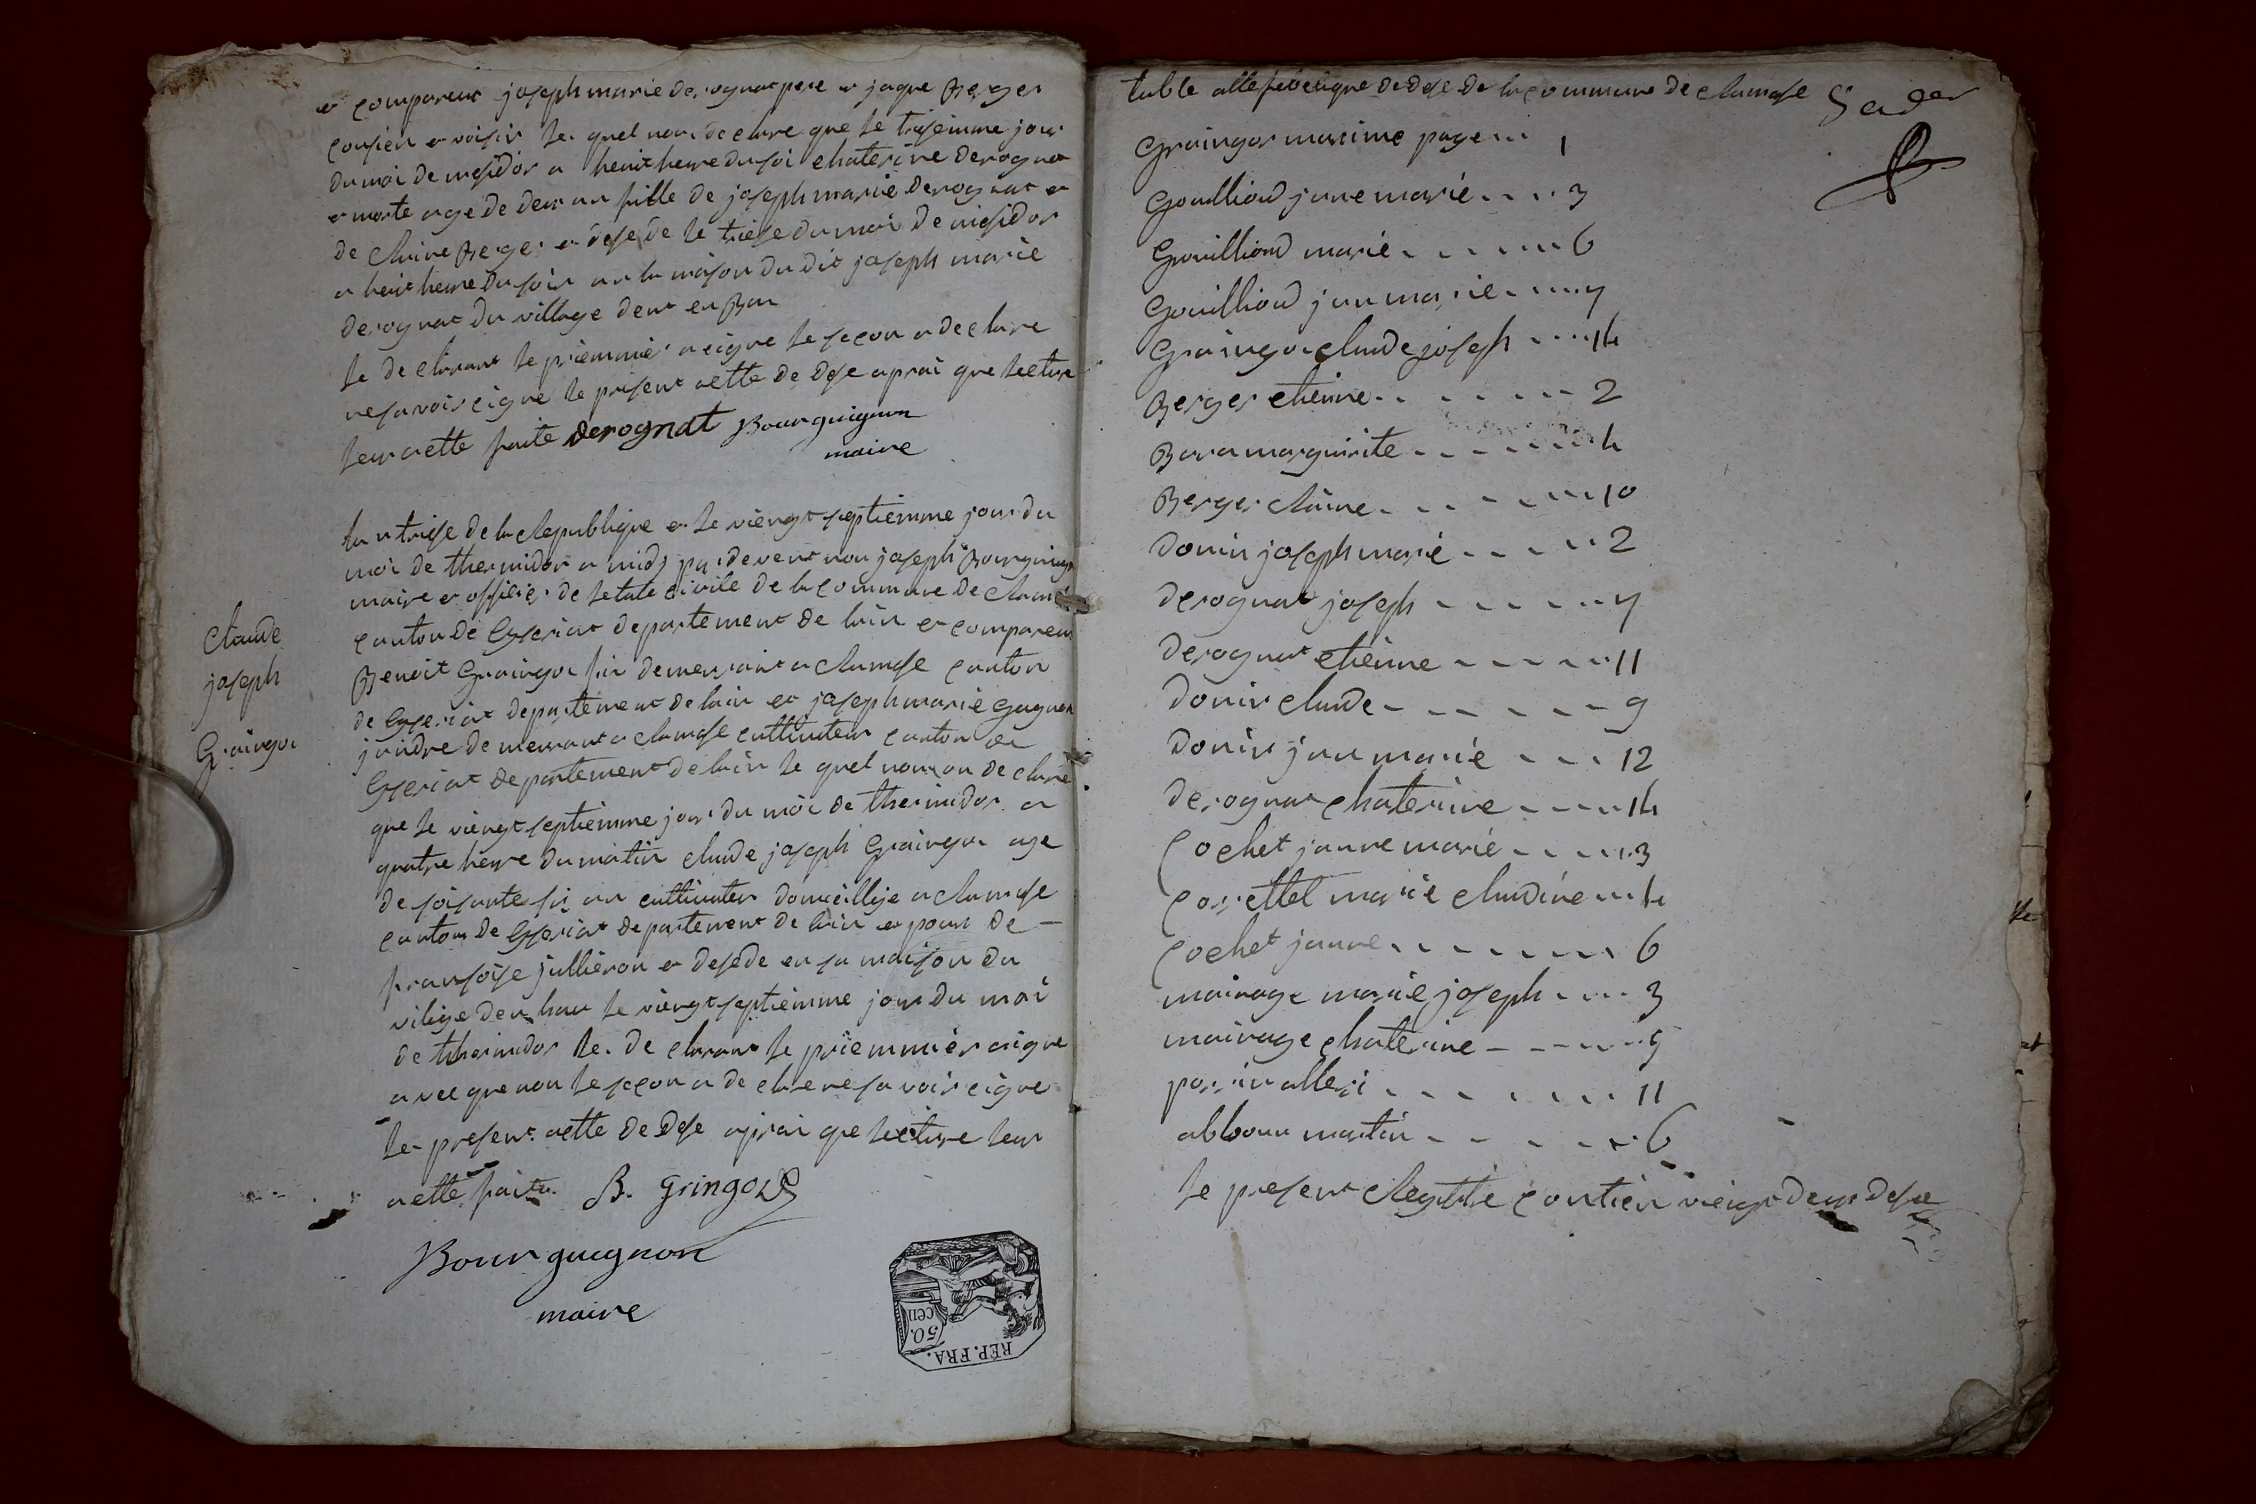 et compareut joseph marie derognat pere et jaque Berger
cousien et voisin le quel nou declare que le treisiemme jour
du moi de mesidor a heuit heure du soi chaterine derognat
et morte age de deus an fille de joseph marie derognat et
de claire Berger et desede le trèise du moi de mesidor
a heuit heure du soir an la maison du dit joseph marie
derognat du village dent en Bau
le declarant le priemmier a cigne le secon a declare
ne savoir cigne le present actte de dese aprai que lecture
leur a ette faite derognat Bourguignon
maire
lan trèise de la Republique et le viengt septiemme jour du
moi de thermidor a midj par devent nou joseph Bourguignon
maire et offisier de letate civile de la commune de
canton de Ceyseriat departement de lain et compareu
Benoit Graingor fis demeurant a canton
de Ceyseriat departement de lain et joseph marie
jandre demeurant a culltivateur canton de
Ceyseriat departement de lain le quel nou on declare
que le viengt septiemme jour du moi de thermidor a
quatre heure du matin claude joseph Graingor age
de soisante sis an culltivateur domicillije a
canton de Ceyseriat departement de lain epous de
fransoise jullieron et desede en sa maison du
vilige den hau le viengt septiemme jour du moi
de thermidor le declarant le priemmièr a cigne
avec que nou le secon a declare ne savoir cigne
le present actte de dese aprai que lecture leur
a ette faite. B. Gringoz
Bourguignon
maire
Claude
joseph
Graingor
REP. FRA.
50.
cen
table allefabetique de dese de la commune de
Graingor maxime page 1
Gouillioud jane marie 3
Gouillioud marie 6
Gouillioud jan marie 7
Graingor claude joseph 14
Berger etienne 2
Bara margurite 4
Berger claire 10
Donin joseph marie 2
Derognat joseph 7
Derognat etienne 11
Donin claude 9
Donin jan marie 12
Derognat chaterine 14
Cochet janne marie 3
Corettet marie claudine 4
Cochet janne 6
mairage marie joseph 3
mairage chaterine 5
11
martin 6
le present Registre contien viengt deus dese